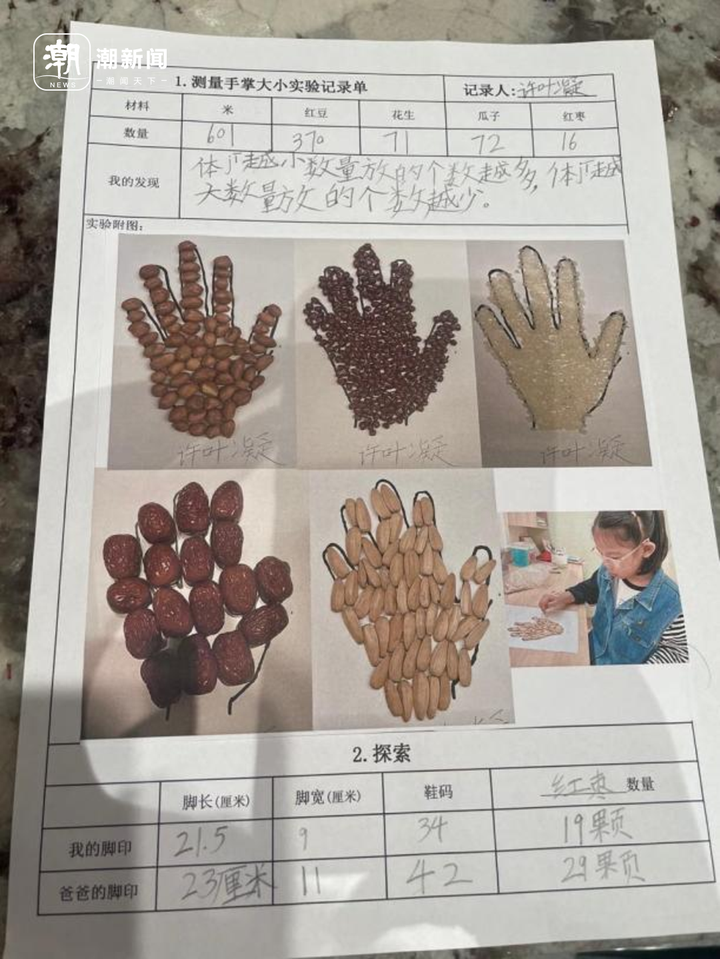 潮新闻
潮
NEWS
潮闻天下
1.测量手掌大小实验记录单 记录人:许叶凝
材料 米 红豆 花生 瓜子 红枣
数量 601 370 71 72 16
我的发现
体厂越小数量放的个数越多,体厂越
大数量放的个数越少。
实验附图:
许叶凝 许叶凝 许叶凝
2.探索
脚长(厘米) 脚宽(厘米) 鞋码 红枣 数量
我的脚印 21.5 9 34 19颗
爸爸的脚印 23厘米 11 42 29颗